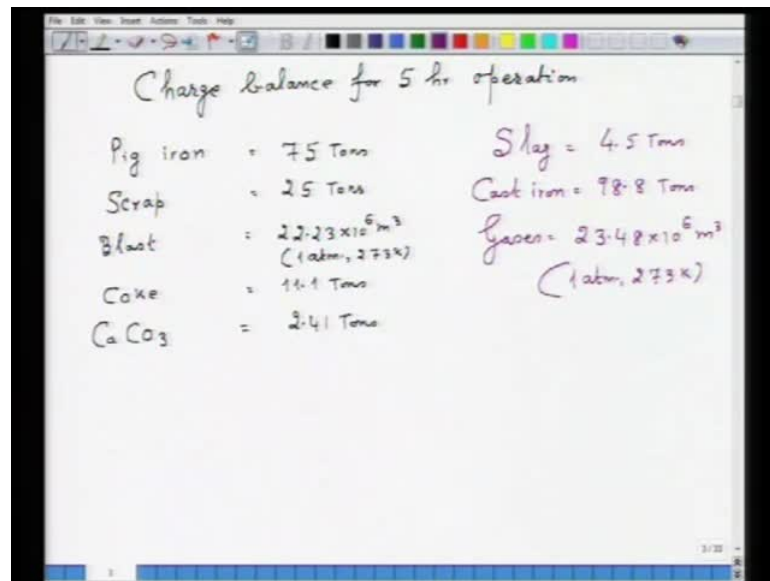 File Edit View Insert Actions Tools Help
Charge balance for 5 hr operation
Pig iron = 75 Tons
Scrap = 25 Tons
Blast = 22.23×10⁶ m³
(1 atm, 273K)
Coke = 11.1 Tons
CaCO3 = 2.41 Tons
Slag = 4.5 Tons
Cast iron = 98.8 Tons
Gases = 23.48×10⁶ m³
(1 atm, 273K)